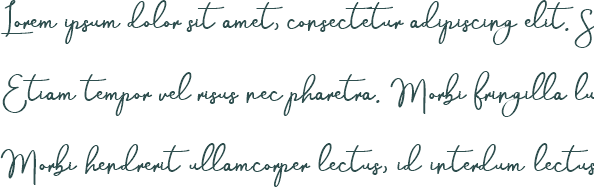 Lorem ipsum dolor sit amet, consectetur adipiscing elit. S
Etiam tempor vel risus nec pharetra. Morbi fringilla lu
Morbi hendrerit ullamcorper lectus, id interdum lectus